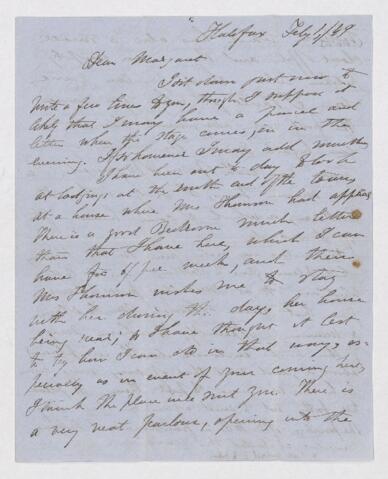 Halifax Feby 1/49
Dear Margaret
I sit down just now to
write a few lines to you, though I suppose it
likely that I may have a parcel and
letter when the stage comes in in the
evening. If so however I may add another
I have been out to day & look
at lodgings at the south end of the town
at a house where Mrs Thomson had applied
There is a good Bedroom much better
than that I have here, which I can
have for 6/ per week, and then
Mrs Thomson wishes me to stay
with her during the day, her house
being near; so I have thought it best
to try how I can do in that way, es-
pecially as in event of your coming here,
I think the place will suit you. There is
a very neat parlour, opening into the